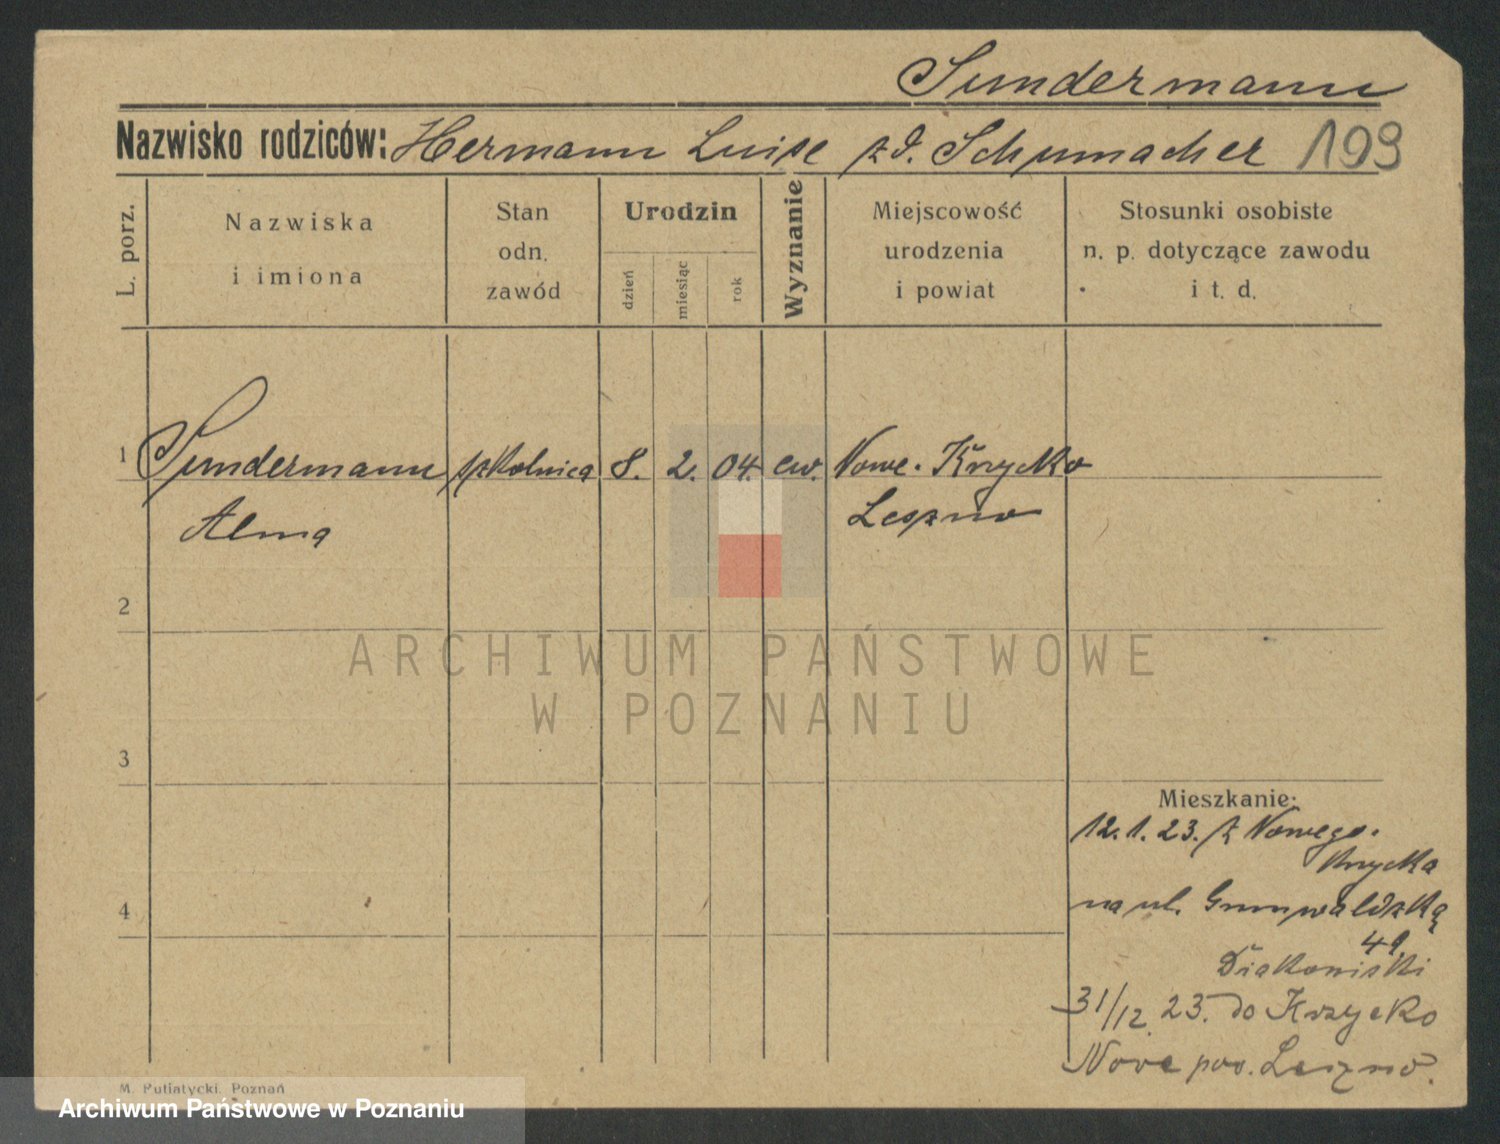 Sundermann
Nazwisko rodziców: Hermann Luise zd. Schumacher 193
L. porz.
Nazwiska
i imiona
Stan
odn.
zawód
Urodzin
dzień
miesiąc
rok
Wyznanie
Miejscowość
urodzenia
i powiat
Stosunki osobiste
n. p. dotyczące zawodu
i t. d.
1 Sundermann szkolnica 8. 2. 04. ew. Nowe. Krzycko
Alma Leszno
2
ARCHIWUM PAŃSTWOWE
W POZNANIU
3
Mieszkanie:
12.1.23. z Nowego.
Krzycka
4
na ul. Grunwaldzką
49.
Diakoniski
31/12. 23. do Krzycko
Nove pow. Leszno.
M. Putiatycki, Poznań
Archiwum Państwowe w Poznaniu